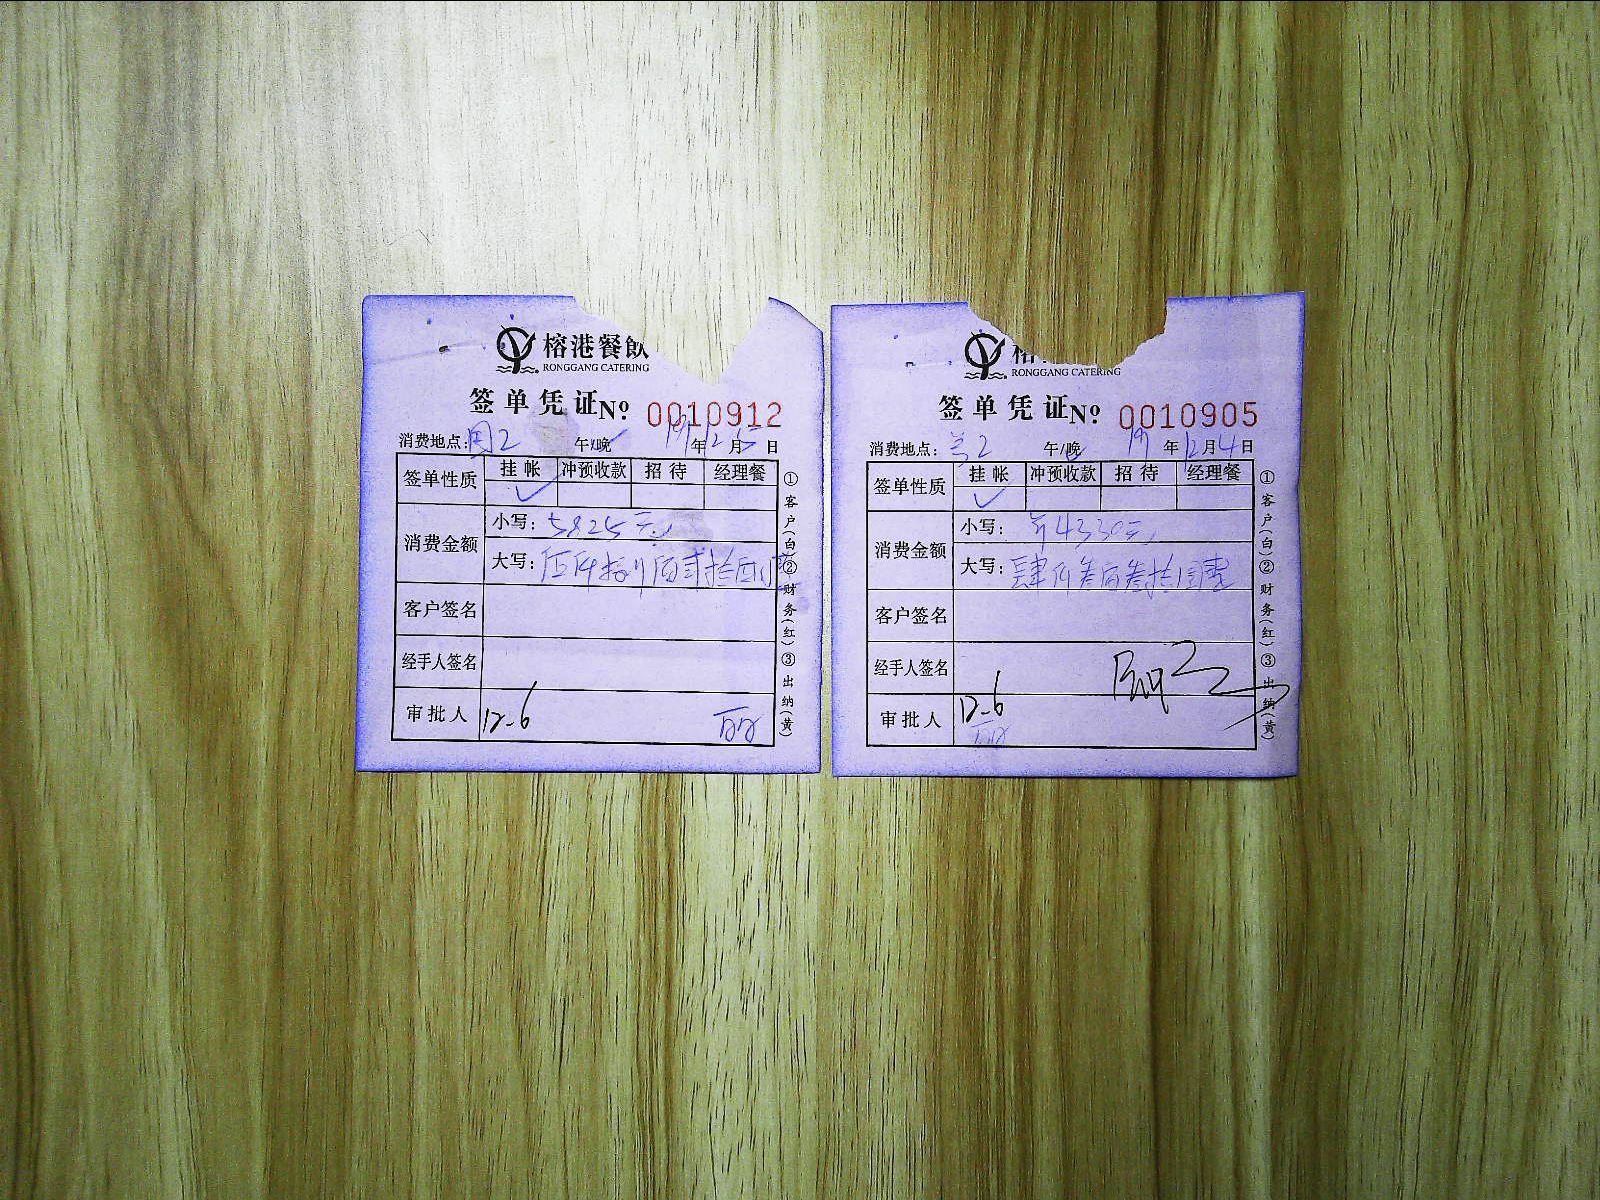 榕港餐飲
RONGGANG CATERING
签单凭证No. 0010912
消费地点: 2 午/晚 19年12月5日
签单性质 挂帐 冲预收款 招待 经理餐
消费金额
小写: 5825元
大写: 伍仟捌佰贰拾伍
客户签名
经手人签名
审批人 12-6
①客户(白)②财务(红)③出纳(黄)
RONGGANG CATERING
签单凭证No. 0010905
消费地点: 兰2 午/晚 19年12月4日
签单性质 挂帐 冲预收款 招待 经理餐
消费金额
小写: 4330元
大写: 肆仟叁佰叁拾圆整
客户签名
经手人签名
审批人 12-6
①客户(白)②财务(红)③出纳(黄)